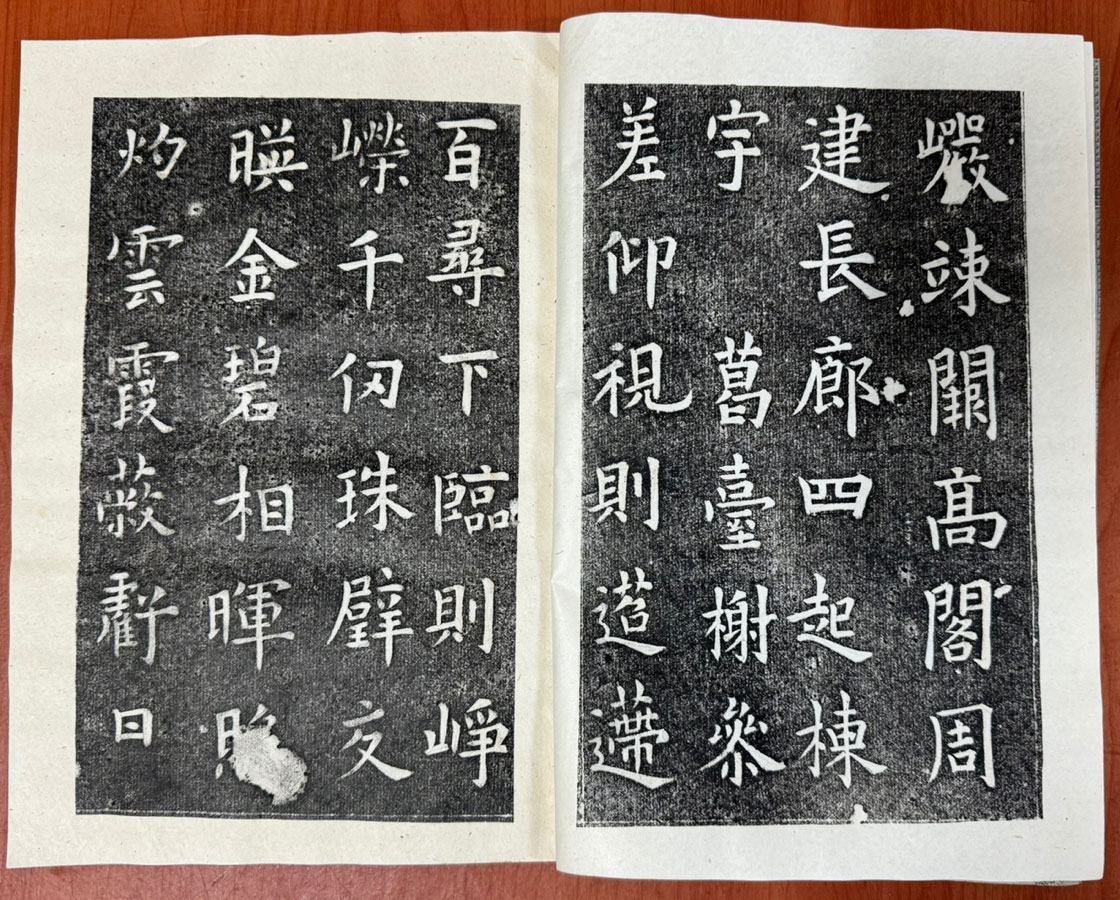 巖竦闕高閣周
建長廊四起棟
宇葛臺榭參
差仰視則迢遰
百尋下臨則崢
嶸千仞珠璧交
暎金碧相暉
灼雲霞蔽虧日